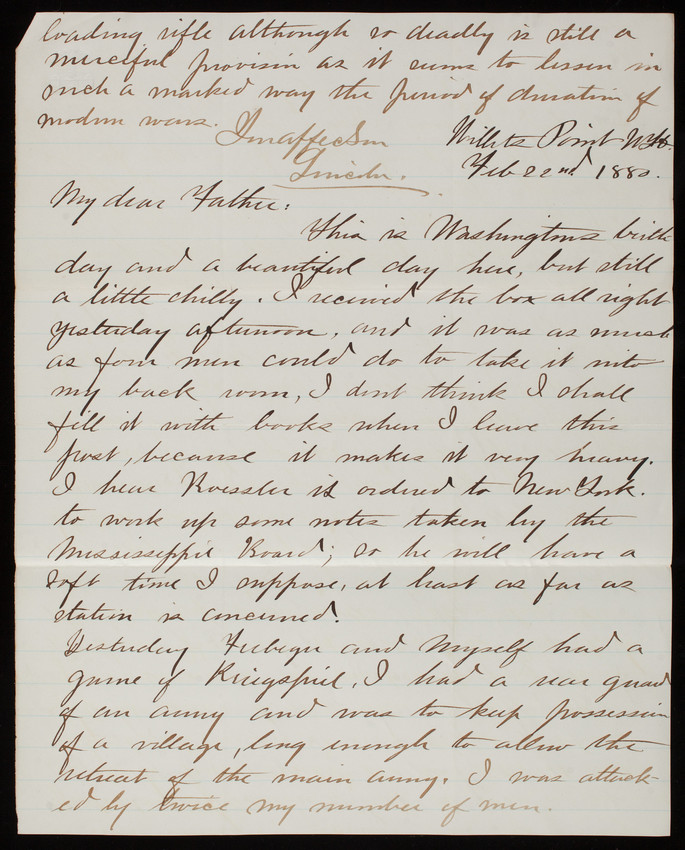 loading rifle although so deadly is still a
merciful provision as it seems to lessen in
such a marked way the period of duration of
modern wars.
Willets Point N.Y.
Lincoln.
Feb 22nd 1880.
My dear Father:
This is Washingtons birth
day and a beautiful day here, but still
a little chilly. I received the box all right
yesterday afternoon, and it was as much
as four men could do to take it into
my back room, I dont think I shall
fill it with books when I leave this
post, because it makes it very heavy.
I hear Roessler is ordered to New York.
to work up some notes taken by the
Mississippi Board; so he will have a
soft time I suppose, at least as far as
station is concerned.
Yesterday and myself had a
game of Kriegspiel, I had a rear guard
of an army and was to keep possession
of a village, long enough to allow the
retreat of the main army. I was attack-
ed by twice my number of men.